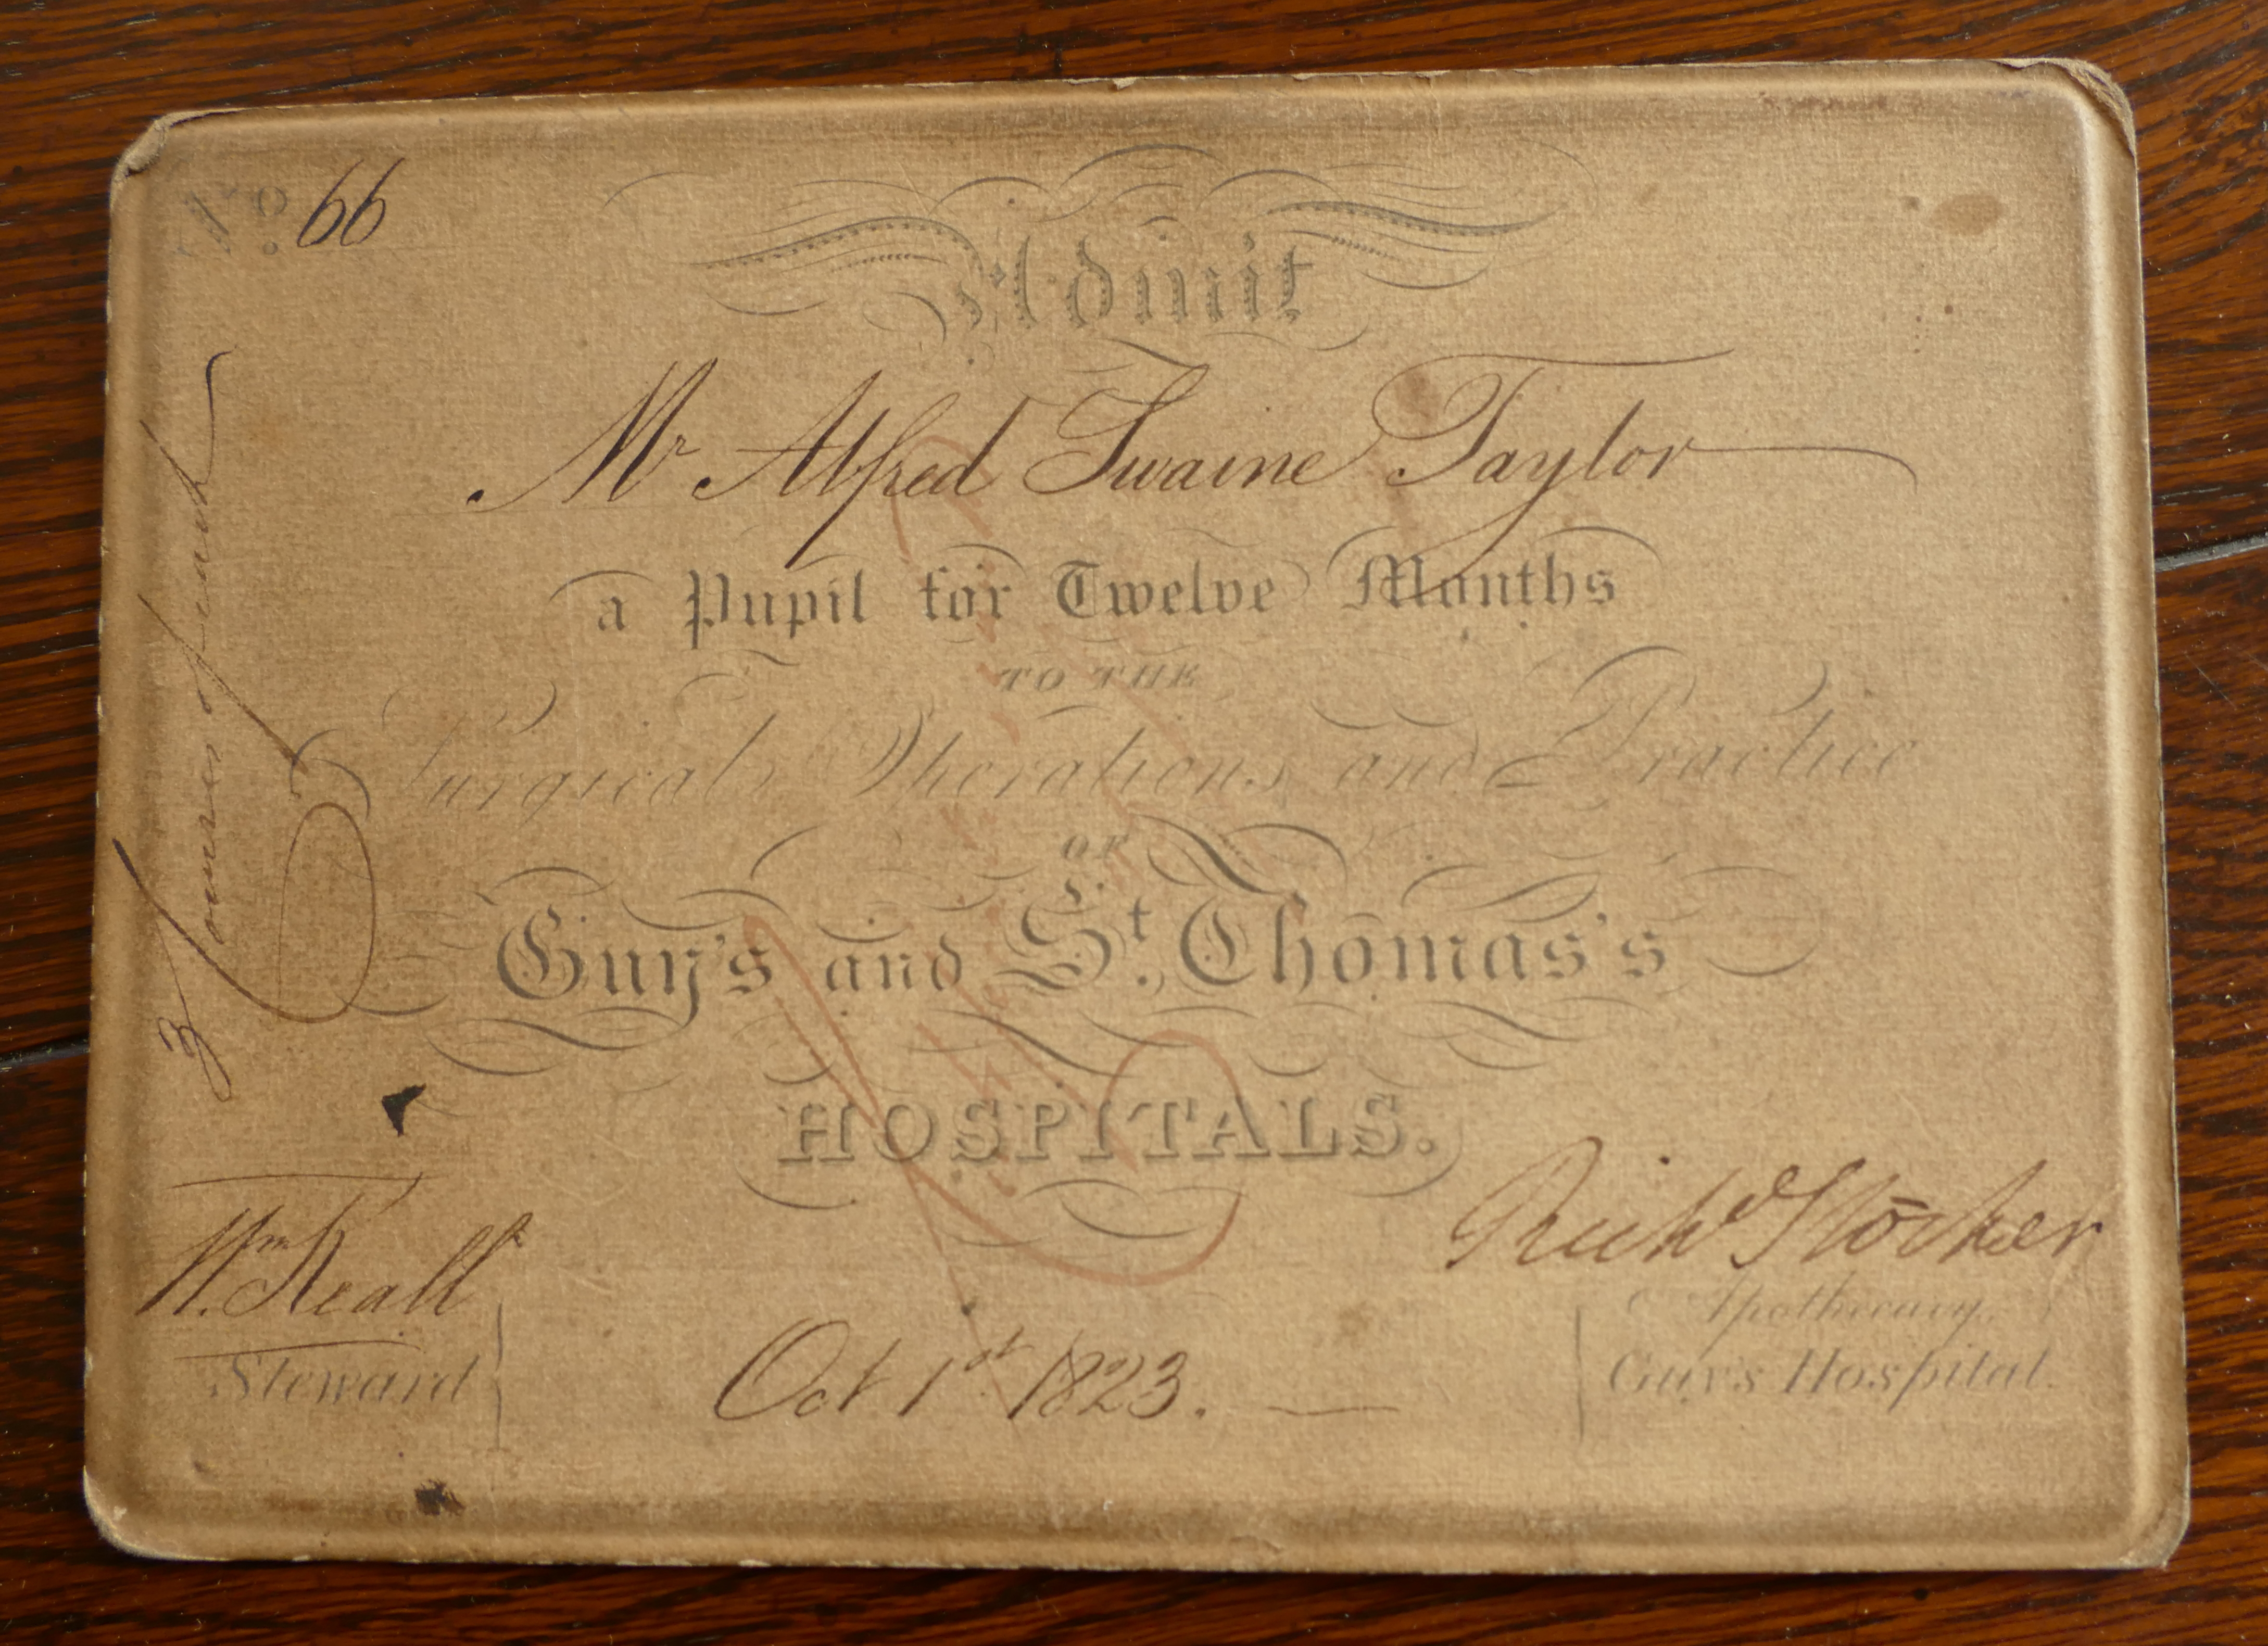 No. 66
Admit
Mr Alfred Swaine Taylor
a Pupil for Twelve Months
TO THE
Surgical Operations and Practice
OF
Guy's and St. Thomas's
HOSPITALS.
Wm
Steward
Oct 1st 1823.
Richd Stocker
Apothecary,
Guy's Hospital.
3